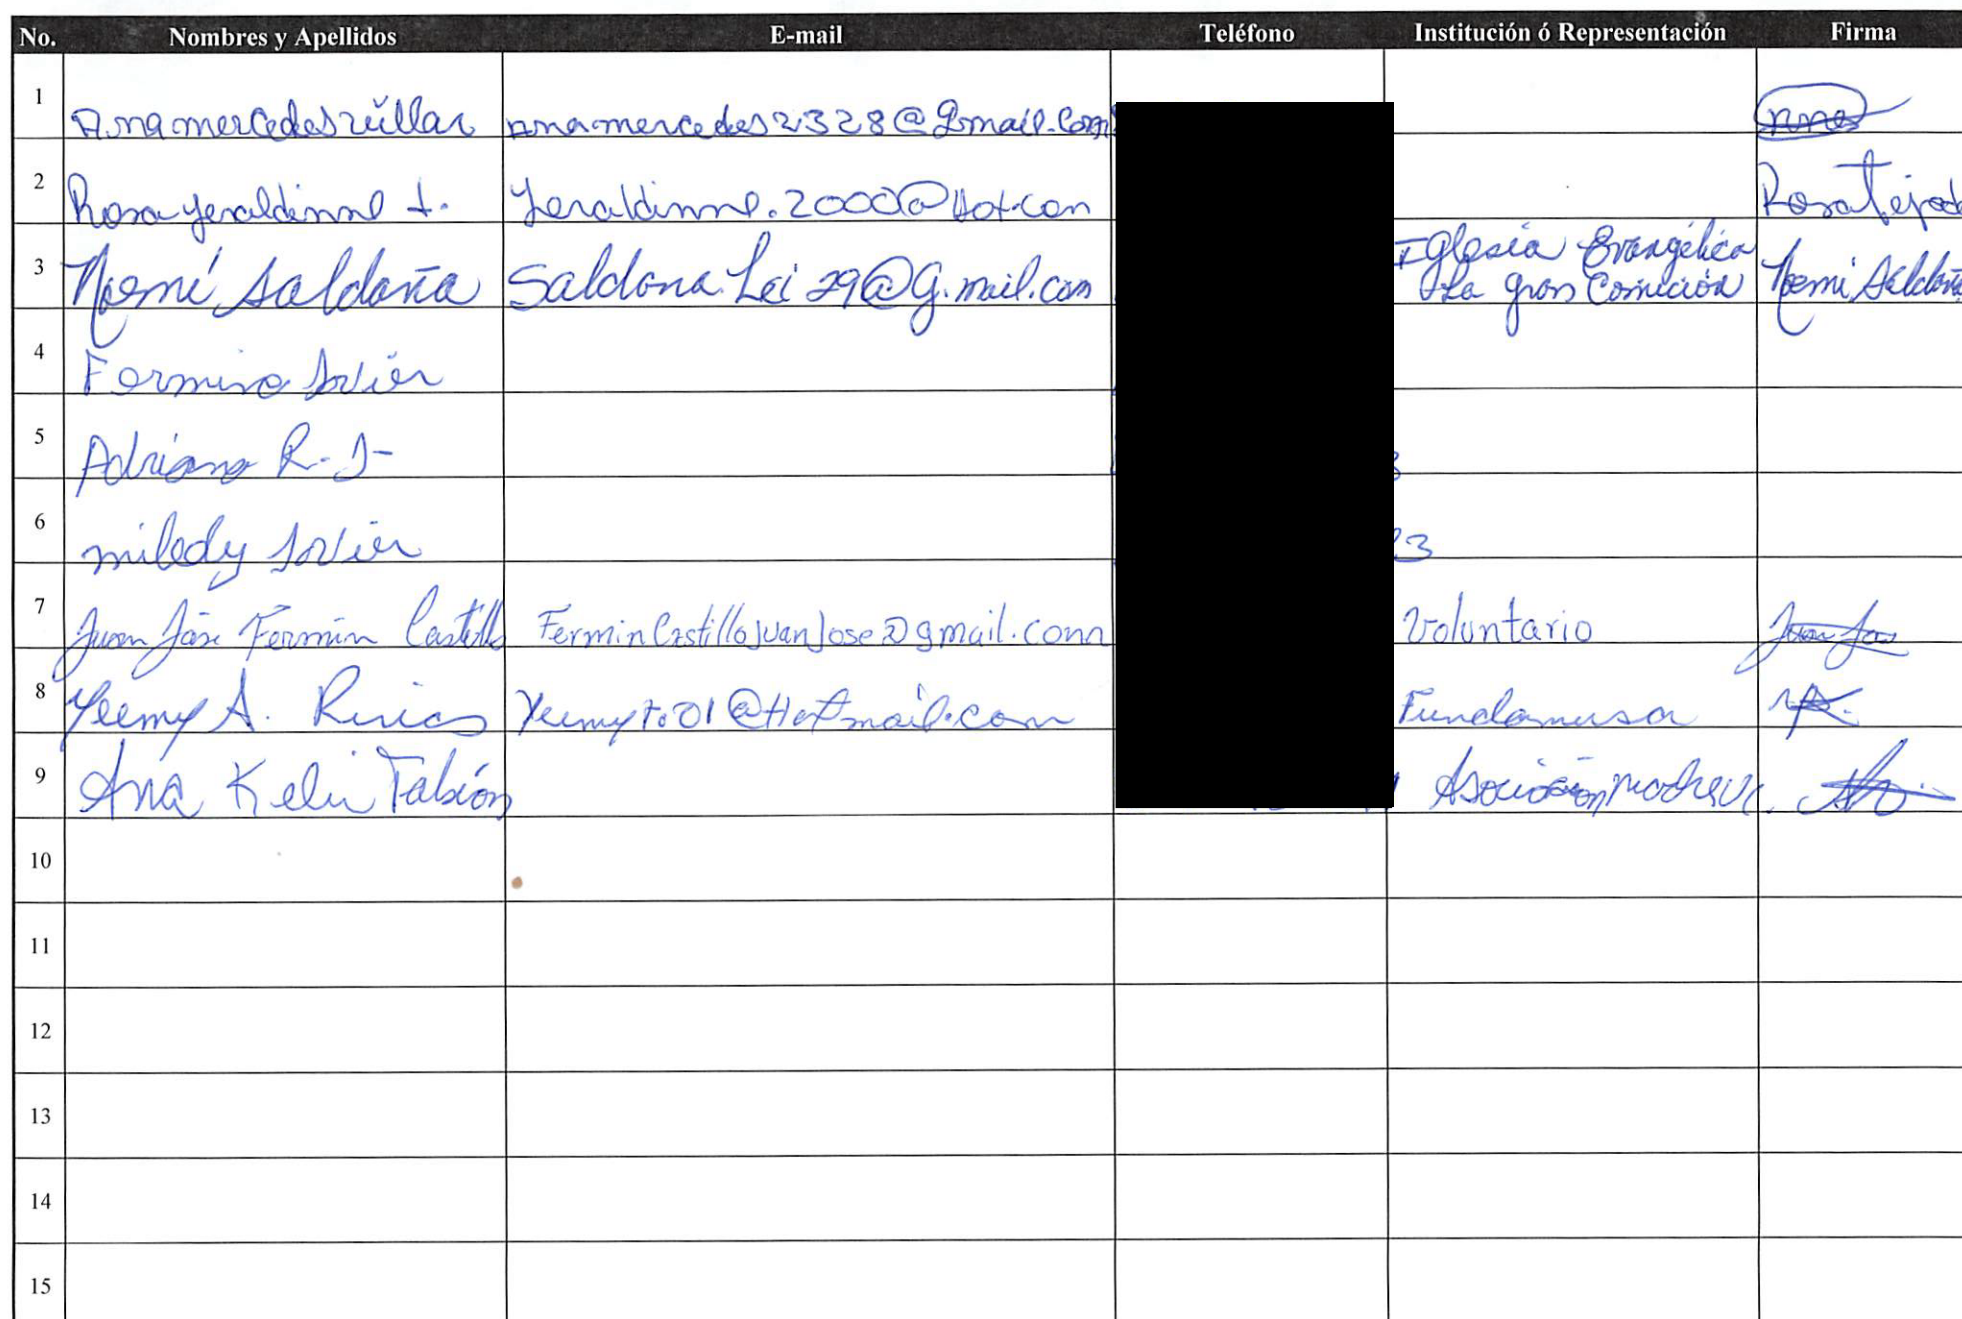 No. Nombres y Apellidos E-mail Teléfono Institución ó Representación Firma
1 Ana mercedes anamercedes2328@gmail.com
2 Rosa yeraldinne t. Yeraldinne.2000@Hot.con Rosa Tejada
3 Noemí Saldaña Saldana.Lei29@G.mail.com Iglesia Evangélica La gran Comición Noemi Saldaña
4 Fermina Javier
5 Adriano R. J-
6 miledy Javier 23
7 Juan José Fermín Castillo FerminCastilloJuanJose@gmail.com Voluntario Juan Jos
8 Yeemy A. Yeemyto01@Hotmail.com Fundamusa
9 Ana Kelin Fabión Asociación
10
11
12
13
14
15